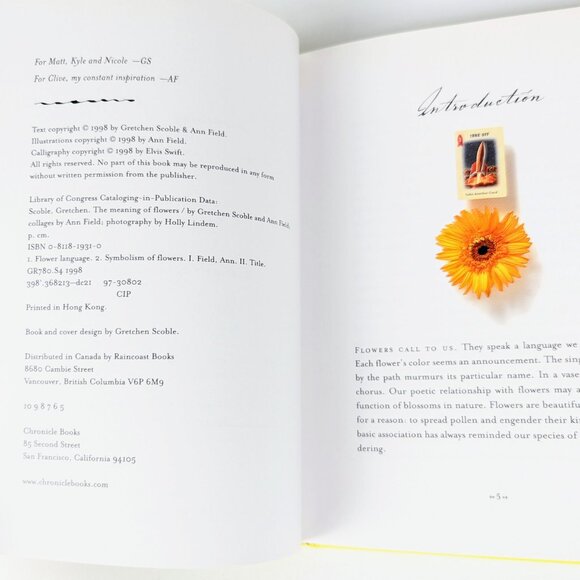 For Matt, Kyle and Nicole —GS
For Clive, my constant inspiration —AF
Text copyright © 1998 by Gretchen Scoble & Ann Field.
Illustrations copyright © 1998 by Ann Field.
Calligraphy copyright © 1998 by Elvis Swift.
All rights reserved. No part of this book may be reproduced in any form
without written permission from the publisher.
Library of Congress Cataloging-in-Publication Data:
Scoble, Gretchen. The meaning of flowers / by Gretchen Scoble and Ann Field,
collages by Ann Field; photography by Holly Lindem.
p. cm.
ISBN 0-8118-1931-0
1. Flower language. 2. Symbolism of flowers. I. Field, Ann. II. Title.
GR780.S4 1998
398'.368213—dc21 97-30802
CIP
Printed in Hong Kong.
Book and cover design by Gretchen Scoble.
Distributed in Canada by Raincoast Books
8680 Cambie Street
Vancouver, British Columbia V6P 6M9
10 9 8 7 6 5
Chronicle Books
85 Second Street
San Francisco, California 94105
www.chroniclebooks.com
Introduction
FLOWERS CALL TO US. They speak a language we
Each flower's color seems an announcement. The sing
by the path murmurs its particular name. In a vase
chorus. Our poetic relationship with flowers may a
function of blossoms in nature. Flowers are beautiful
for a reason: to spread pollen and engender their kin
basic association has always reminded our species of
dering.
5